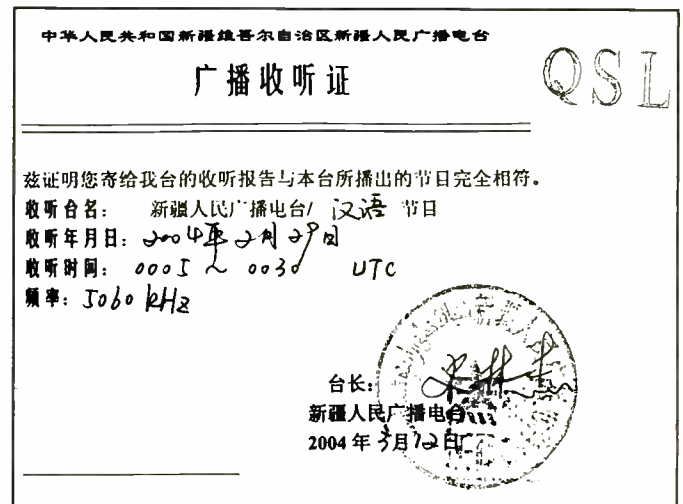 中华人民共和国新疆维吾尔自治区新疆人民广播电台
QSL
广播收听证
兹证明您寄给我台的收听报告与本台所播出的节目完全相符。
收听台名： 新疆人民广播电台/ 汉语 节目
收听年月日：2004年2月29日
收听时间： 0005～0030 UTC
频率：5060 kHz
台长：
新疆人民广播电台
2004年3月12日